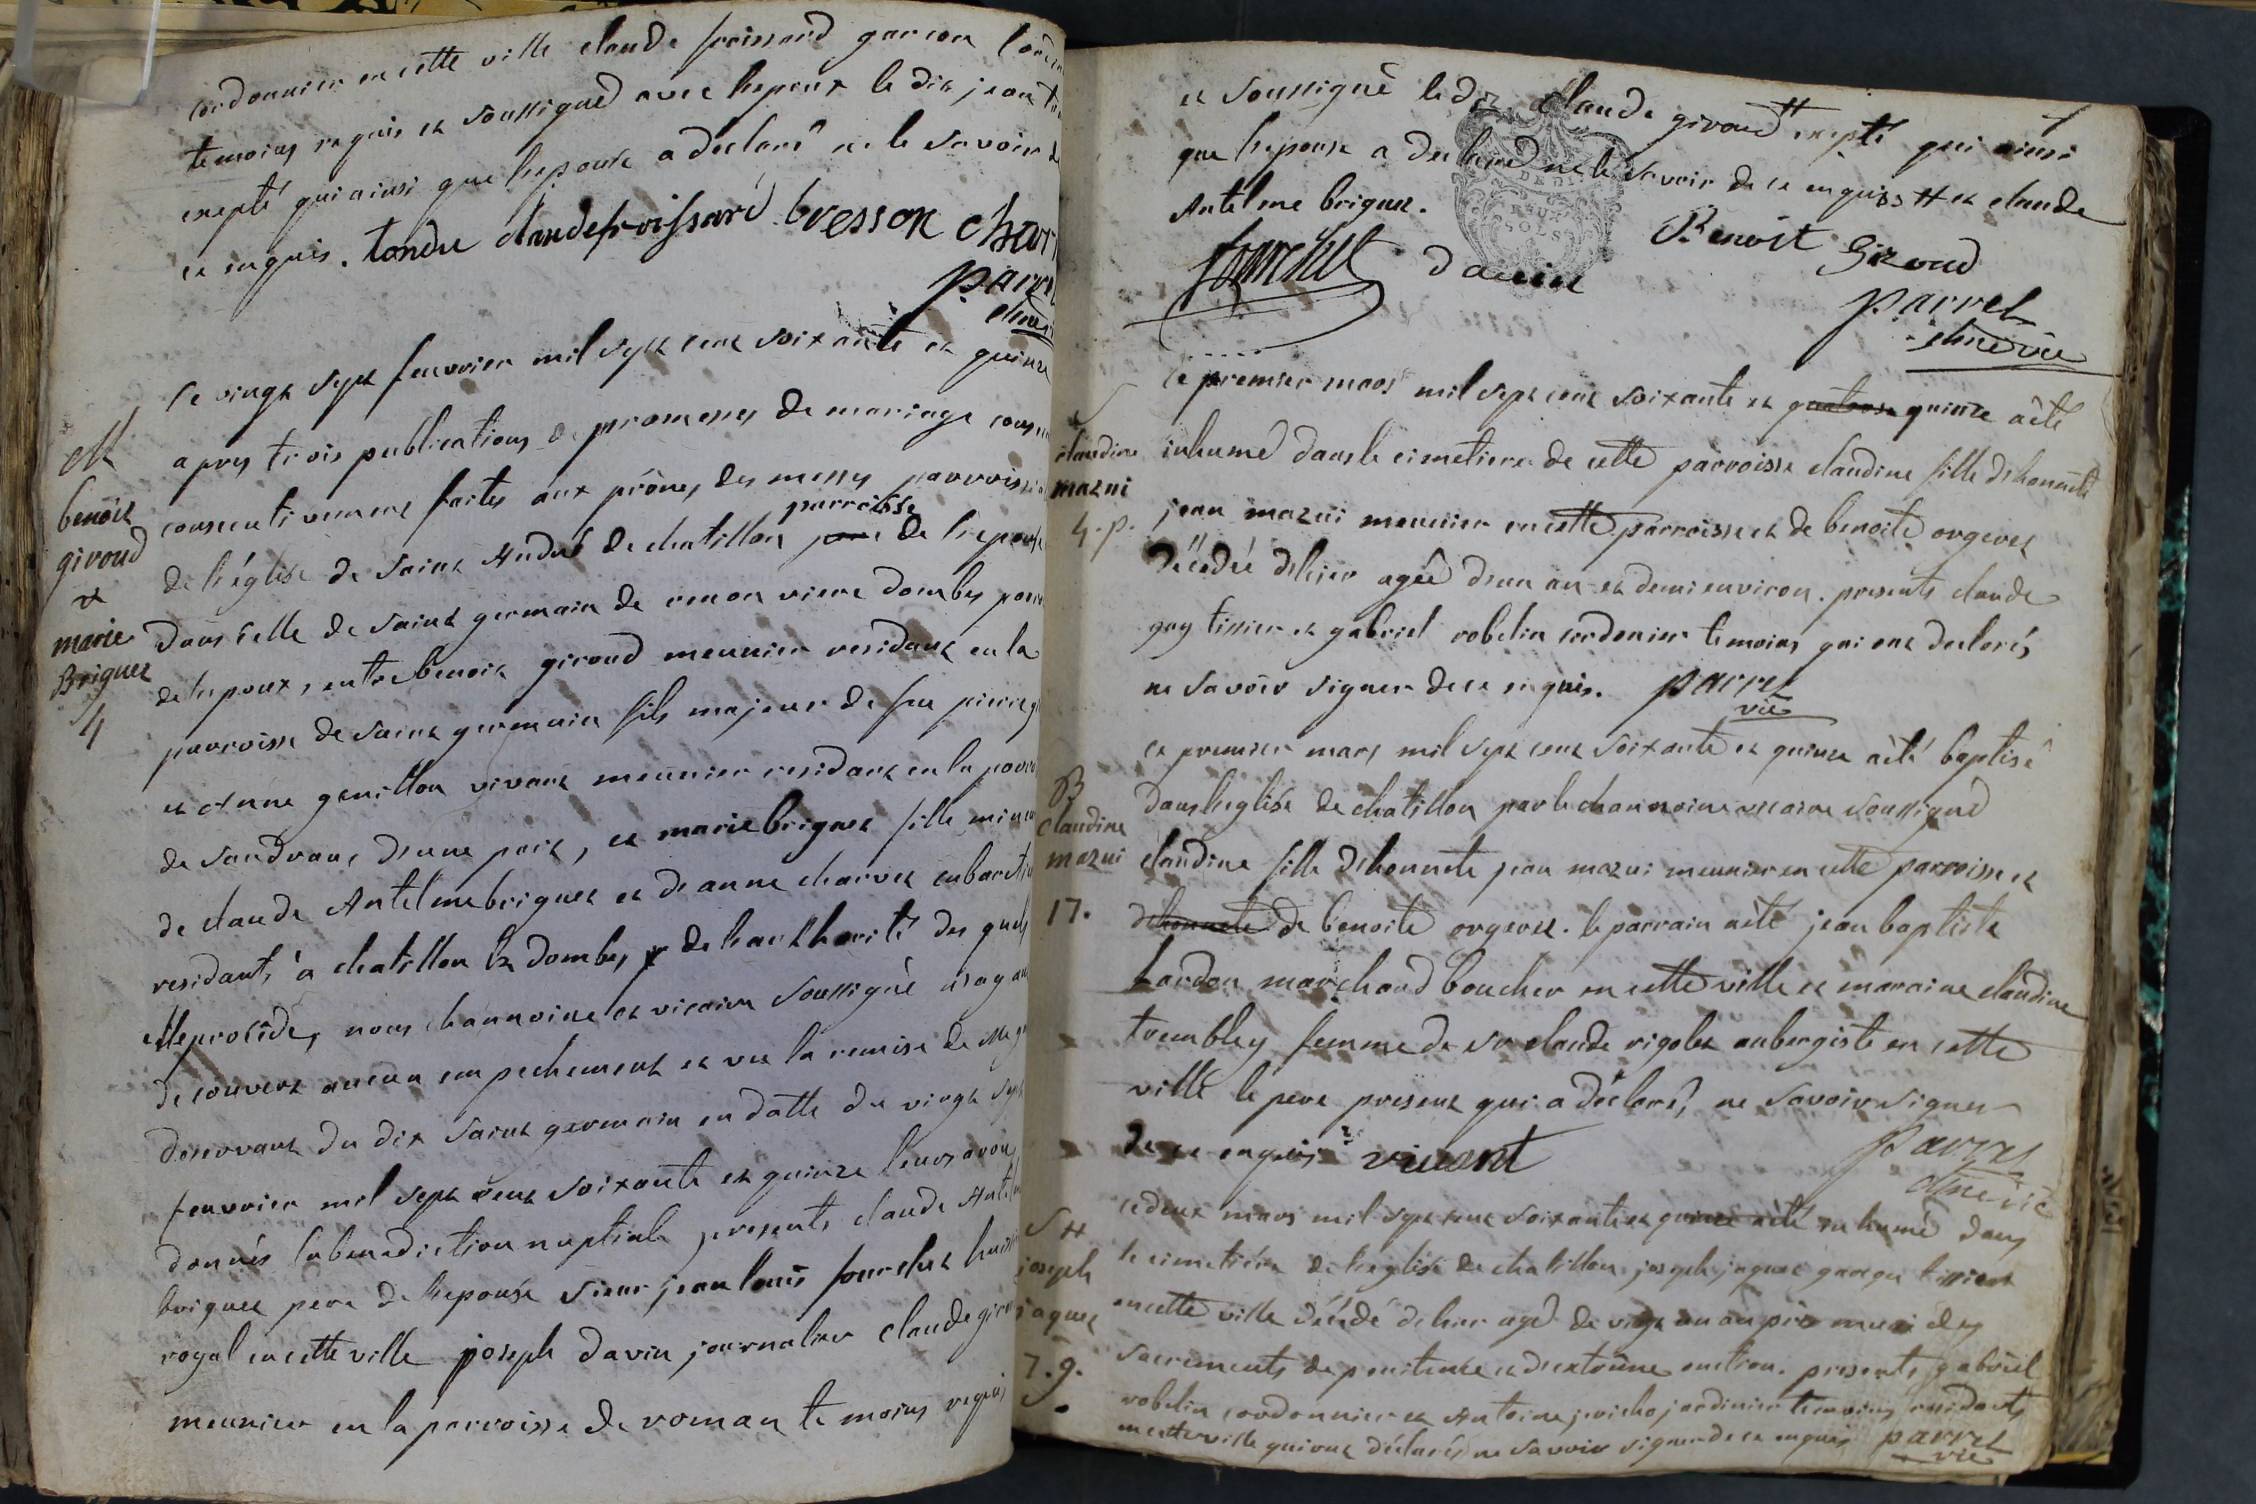 cordonnier en cette ville claude froissard garcon
temoins requis et soussignéd avec l'epoux le dit jean
exepté qui ainsi que l'epouse a declaré ne le savoir
ce enquis. tondu claude froissard bresson
parre
ce vingt sept feuvrier mil sept cent soixante et quinze
M
apres trois publications de promesses de mariage
benoit
consecutivement faites aux prônes des messes parroissi
giroud
parroisse
de l'église de saint André de chatillon de l'epouse
et
dans celle de saint germain de renon viere dombes
marie
Briguet
de l'epoux, entre benoit giroud meunier residant en la
4
parroisse de saint germain fils majeur de feu pierre
et anne genillon vivant meunier residant en la
de sandrans d'une part, et marie briguet fille
de claude Antelme briguet et de anne charvet
residants à chatillon les dombes, de l'authorité des quels
elle procéde, nous channoine et vicaire soussigné
decouvert aucun empechement et vu la remise de
desservant du dit saint germain en datte du vingt sept
feuvrier mil sept cent soixante et quinze leurs avons
donnés la benediction nuptiale presents claude
briguet pere de l'epouse sieur jean louis
royal en cette ville joseph davin journalier claude
meunier en la parroisse de roman temoins requis
et soussigné le dit claude giroud # exepté qui ainsi
que l'epouse a declaré ne le savoir de ce enquis # et claude
Antelme briguet.
Benoit Giroud
davin
parrel
chne vic
ce premier mars mil sept cent soixante et quatorze quinze a été
claudine
inhumé dans le cimetiere de cette parroisse claudine fille d'honnête
mazui
jean mazui meunier en cette parroisse et de benoite orgeret
4. p.
décédée d'hier agée d'un an et demi environ. presents claude
guy tissier et gabriel robelin cordonier temoins qui ont declarés
ne savoir signer de ce enquis. parrel
vic
ce premier mars mil sept cent soixante et quinze a été baptisé
B
dans l'eglise de chatillon par le channoine vicaire soussigné
claudine
mazui
claudine fille d'honnete jean mazui meunier en cette parroisse et
17.
d'honnete de benoite orgeret. le parrain a été jean baptiste
Lardon marchand boucher en cette ville et maraine claudine
trembley femme de sr claude rigolet aubergiste en cette
ville le pere present qui a déclaré, ne savoir signer
de ce enquis vincent parrel
chne vic
ce deux mars mil sept cent soixante et quinze a été inhumé dans
S #
joseph
le cimetiére de l'église de chatillon joseph jaquet garçon tissier
jaquet
en cette ville décédé de hier agé de vingt un an muni des
7. g.
sacrements de penitence et d'extreme onction. presents gabriel
robelin cordonnier et Antoine jardinier temoins residants
en cette ville qui ont déclarés ne savoir signer de ce enquis parrel
vic